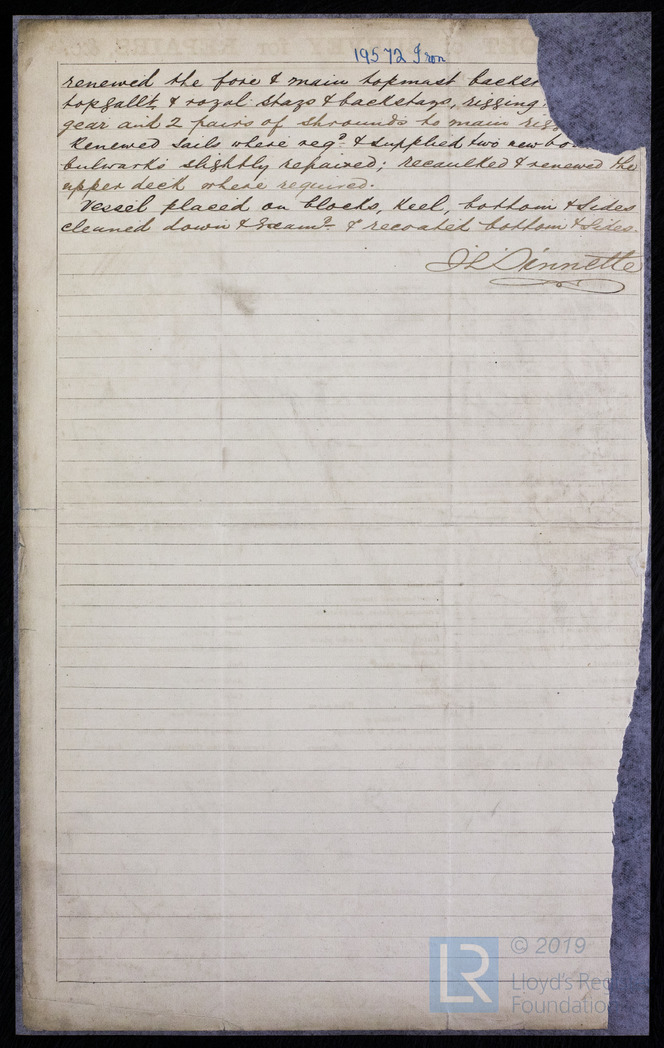 19572 Iron
renewed the fore & main topmast backs
topgallt & royal stays & backstays, rigging
gear and 2 pairs of shrouds to main rigg
Renewed sails where reqd & supplied two new bo
bulwarks slightly repaired; recaulked & renewed the
upper deck where required.
Vessel placed on blocks, keel, bottom & sides
cleaned down & Examd & recoated bottom & sides.
Dinnette
LR © 2019
Lloyd's Reg
Foundation